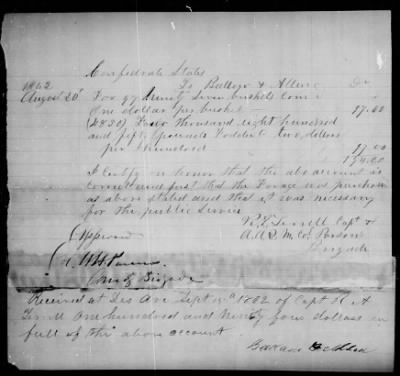 Confederate States
1862 To & Allen Dr
August 20 For 97 ninety seven bushels corn
One dollar per bushel 97.00
(2850) Two thousand eight hundred
and fifty pounds Fodder two dollars
per hundred
I certify on honor that the above account is
correct and just that the Forage was purchased
as above stated and that it was necessary
for the public service
Capt &
A.A.Q.M. Co. Parsons
Brigade
Approved
Brigade
Received at Des Arc Sept 1862 of Capt
One hundred and Ninety four dollars in
full of the above account